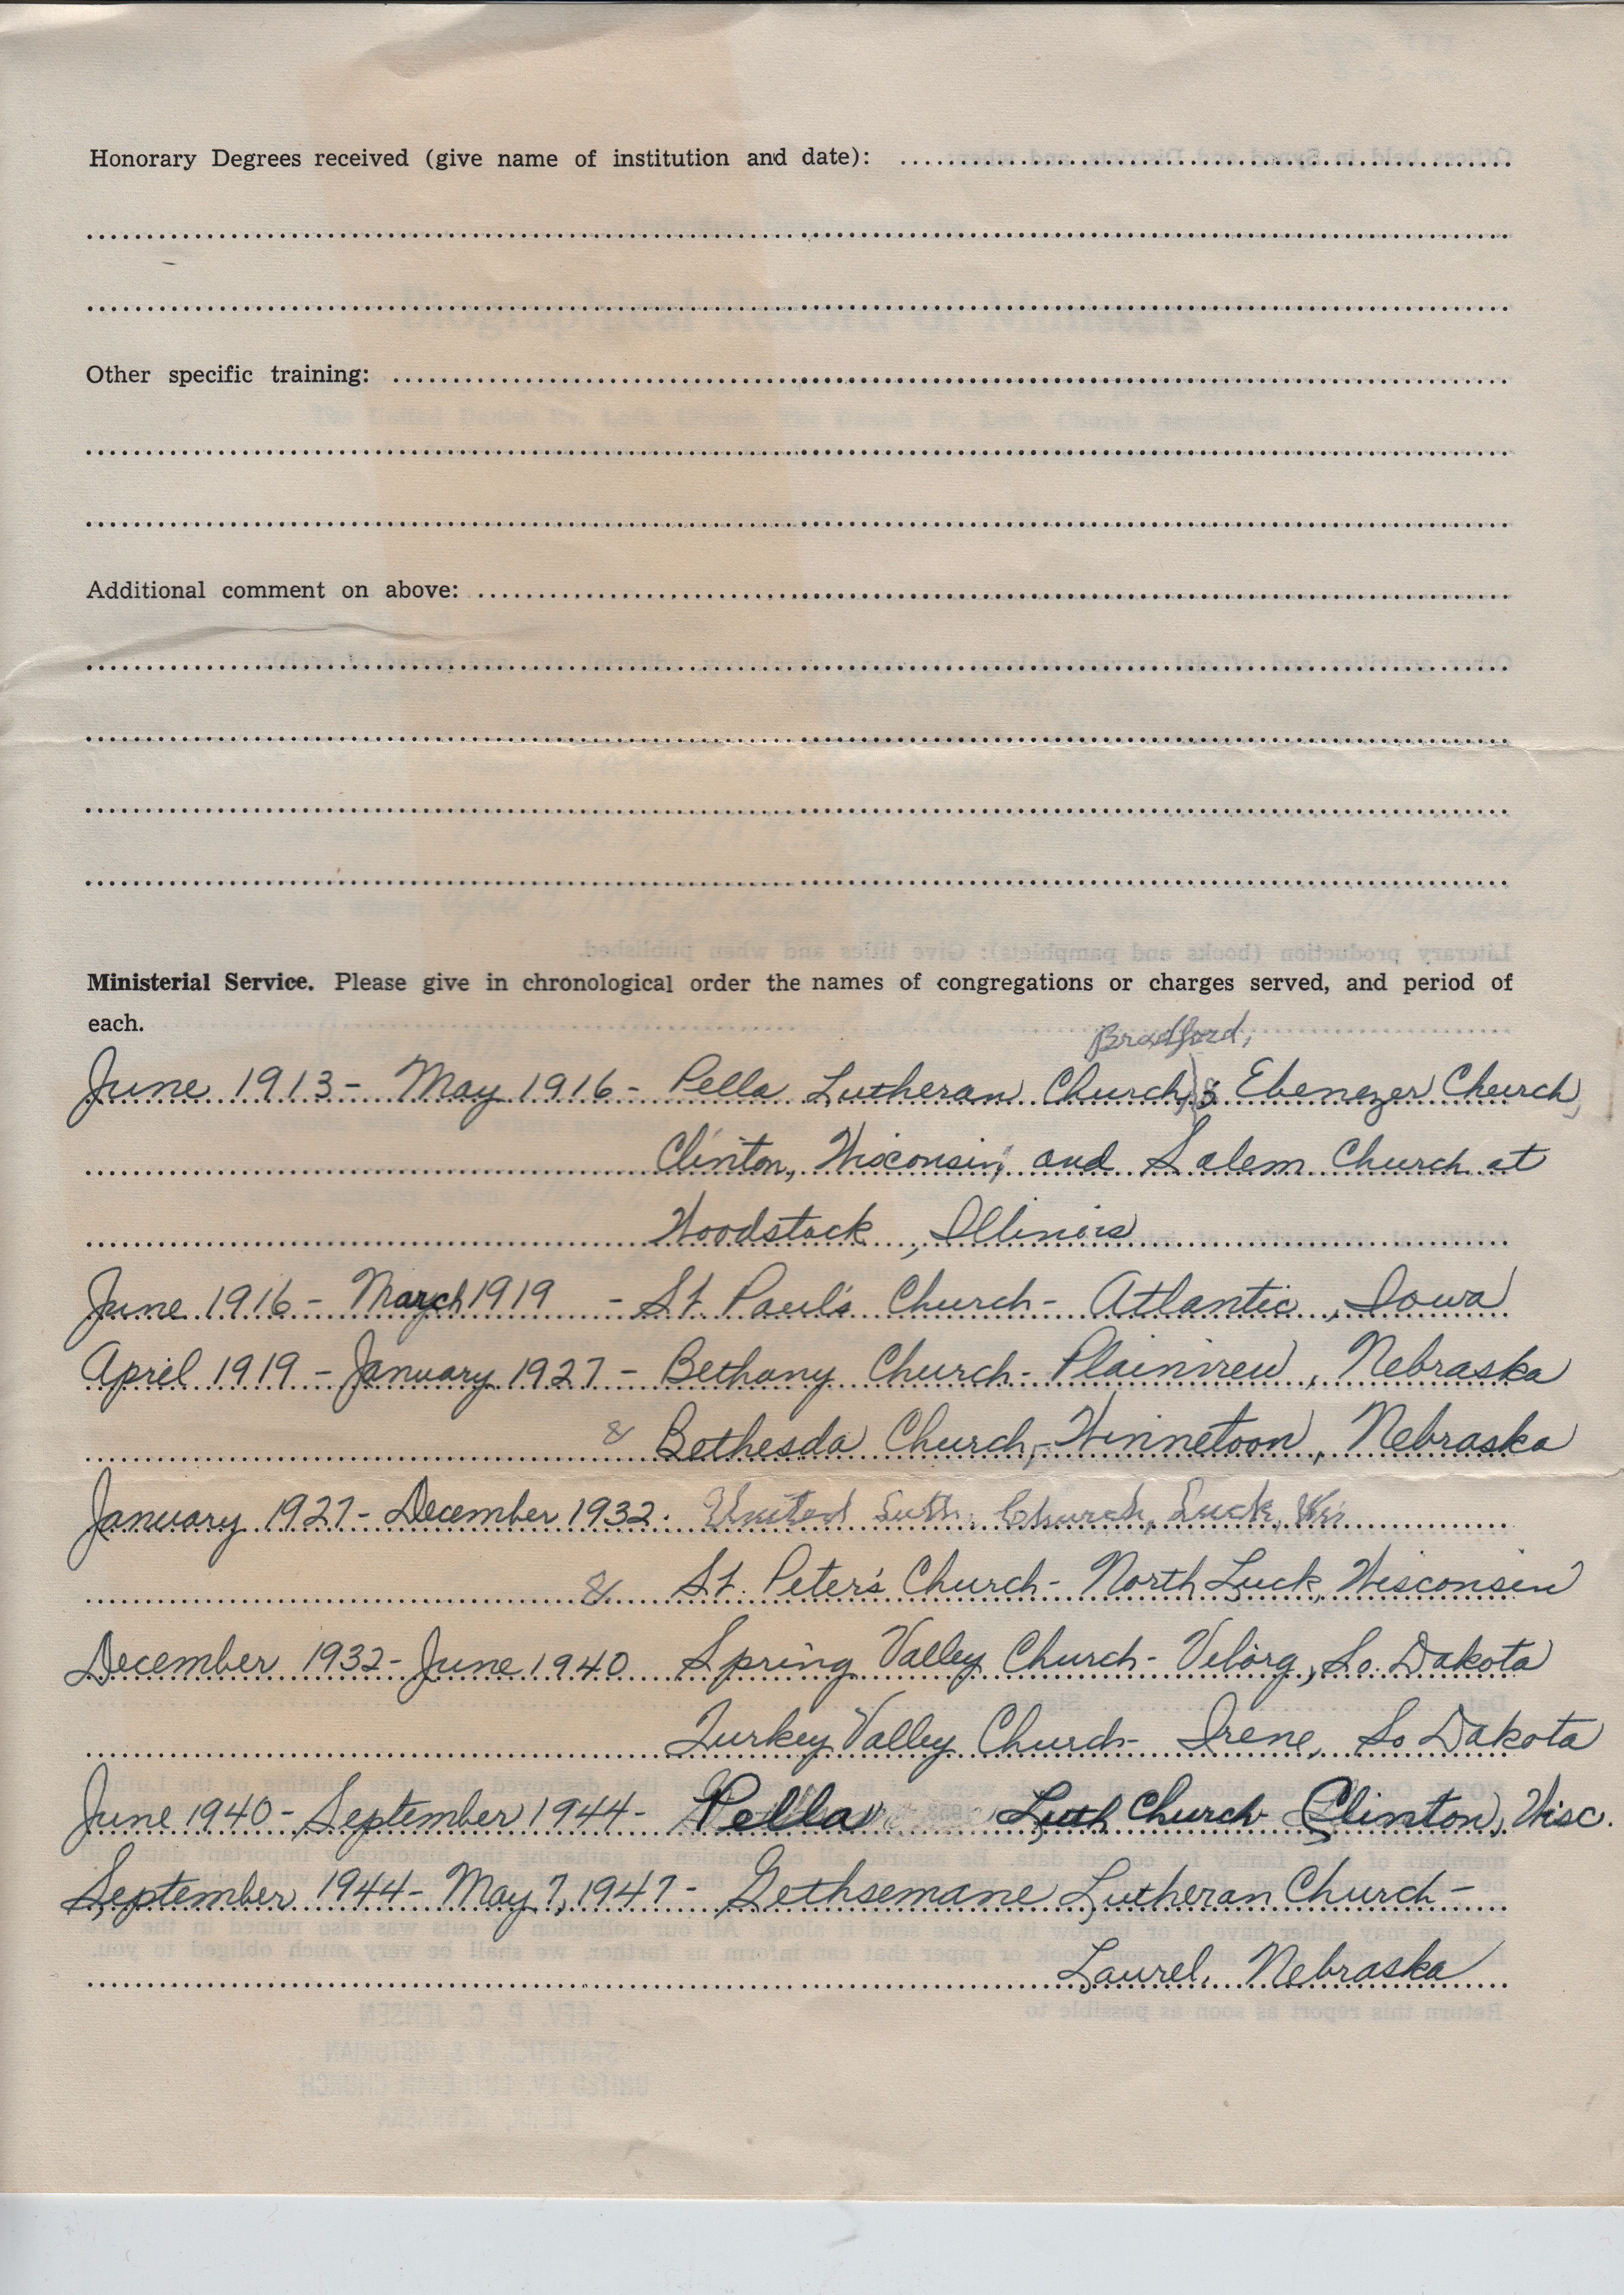 Honorary Degrees received (give name of institution and date):
Other specific training:
Additional comment on above:
Ministerial Service. Please give in chronological order the names of congregations or charges served, and period of
each.
Bradford,
June 1913 - May 1916 - Pella Lutheran Church, & Ebenezer Church,
Clinton, Wisconsin, and Salem Church at
Woodstock, Illinois
June 1916 - March 1919 - St. Paul's Church - Atlantic, Iowa
April 1919 - January 1927 - Bethany Church - Plainview, Nebraska
& Bethesda Church, - Winnetoon, Nebraska
January 1927 - December 1932. United Luth. Church, Luck, Wis
& St. Peter's Church - North Luck, Wisconsin
December 1932 - June 1940 Spring Valley Church - Viborg, So. Dakota
Turkey Valley Church - Irene, So Dakota
June 1940 - September 1944 - Pella Luth Church - Clinton, Wisc.
September 1944 - May 7, 1947 - Gethsemane Lutheran Church -
Laurel, Nebraska
Literary production (books and pamphlets): Give titles and when published.
Return this report as soon as possible to
REV. P. C. JENSEN